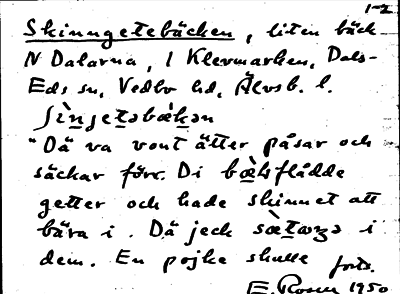 1-2
Skinngetebäcken, liten bäck
N Dalarna, i Klevmarken, Dals-
Eds sn, Vedbo hd, Älvsb. l.
ʃìnjetəbækən
"Dä va vont ätter påsar och
säckar förr. Di bælsflådde
getter och hade skinnet att
bära i. Dä jeck sætarɜə i
dem. En pojke skulle forts.
E. Rosen 1950